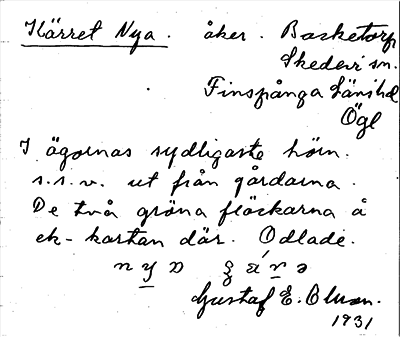 Kärret Nya. åker. Basketorp
Skedevi sn.
Finspånga Länshd
Ögl
I ägornas sydligaste hörn.
s.s.v. ut från gårdarna.
De två gröna fläckarna å
ek-kartan där. Odlade.
Gustaf E. Bluon.
1931